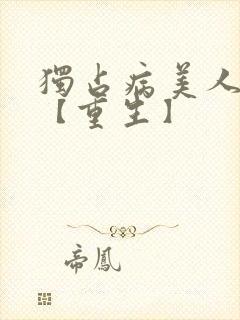 獨占病美人
【重生】
帝鳳